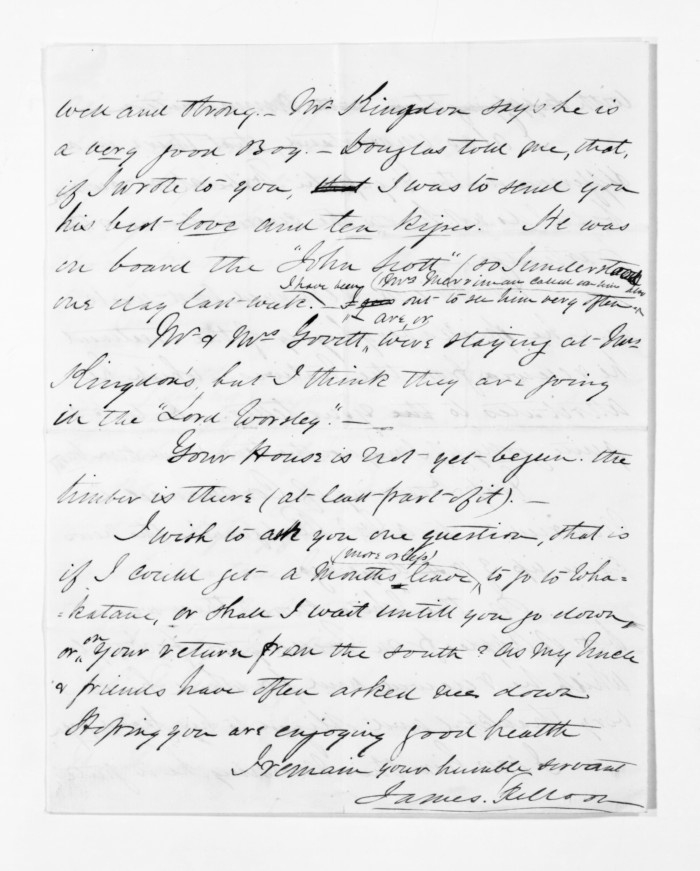 well and strong. — Mr Kingdon says he is
a very good Boy. — Douglas told me, that,
if I wrote to you, that I was to send you
his best love and ten kifses. He was
on board the "John Scott" (so I understand
I have been (Mrs Merriman called on him
one day last week. — out to see him very often
are, or
Mr & Mrs Govett, were staying at Mrs
Kingdon's, but I think they are going
in the "Lord Worsley". —
Your House is not yet begun. the
timber is there (at least part of it). —
I wish to ask you one question, that is
(more or lefs)
if I could get a months leave, to go to Wha-
-katane, or shall I wait untill you go down,
or, on your return from the south? as my Uncle
& friends have often asked me down
Hoping you are enjoying good health
I remain your humble servant
James. Fulloon